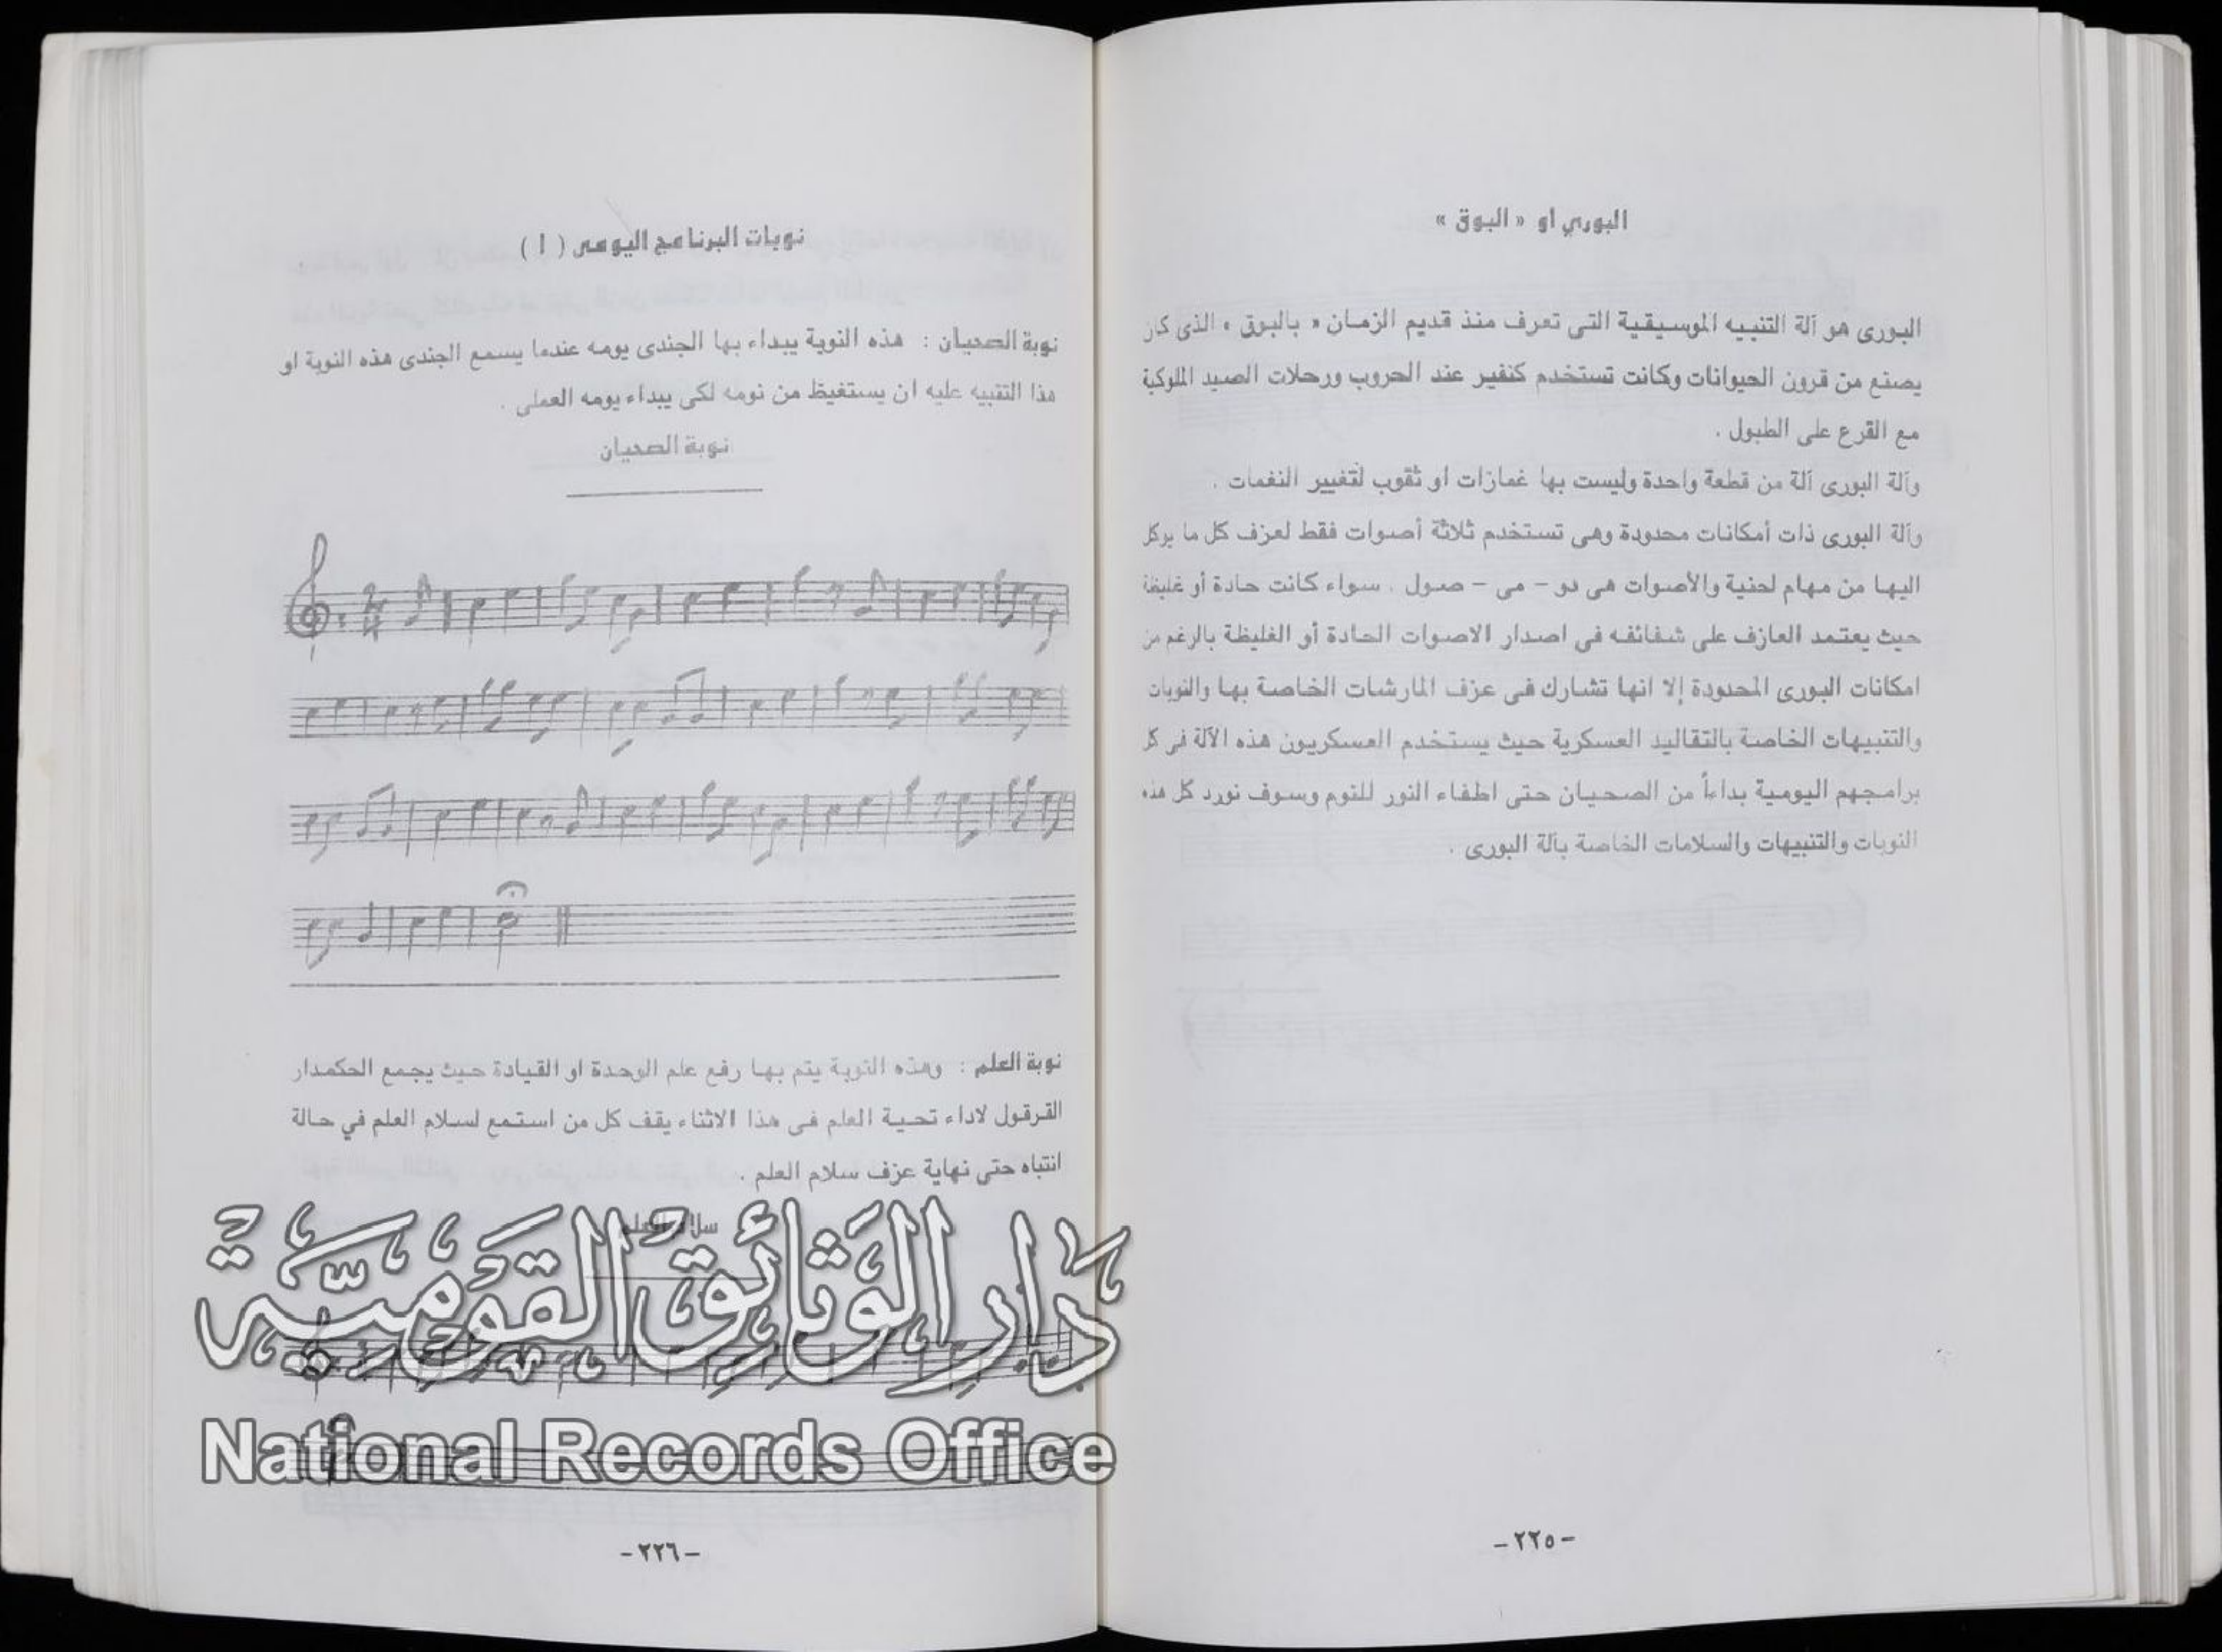 البوري او « البوق »
البورى هو آلة التنبيه الموسيقية التى تعرف منذ قديم الزمان « بالبوق » الذى كان
يصنع من قرون الحيوانات وكانت تستخدم كنفير عند الحروب ورحلات الصيد الملوكية
مع القرع على الطبول .
وآلة البورى آلة من قطعة واحدة وليست بها غمازات او ثقوب لتغيير النغمات .
وآلة البورى ذات أمكانات محدودة وهى تستخدم ثلاثة أصوات فقط لعزف كل ما يوكل
اليها من مهام لحنية والأصوات هى دو – مى – صول . سواء كانت حادة أو غليظة
حيث يعتمد العازف على شفائفه فى اصدار الاصوات الحادة أو الغليظة بالرغم من
امكانات البورى المحدودة إلا انها تشارك فى عزف المارشات الخاصة بها والنوبات
والتنبيهات الخاصة بالتقاليد العسكرية حيث يستخدم العسكريون هذه الآلة فى كل
برامجهم اليومية بداءاً من الصحيان حتى اطفاء النور للنوم وسوف نورد كل هذه
النوبات والتنبيهات والسلامات الخاصة بآلة البورى .
– ٢٢٥ –
نوبات البرنامج اليومى ( ١ )
نوبة الصحيان : هذه النوبة يبداء بها الجندى يومه عندما يسمع الجندى هذه النوبة او
هذا التنبيه عليه ان يستغيظ من نومه لكى يبداء يومه العملى .
نوبة الصحيان
نوبة العلم : وهذه النوبة يتم بها رفع علم الوحدة او القيادة حيث يجمع الحكمدار
القرقول لاداء تحية العلم فى هذا الاثناء يقف كل من استمع لسلام العلم في حالة
انتباه حتى نهاية عزف سلام العلم .
سلام العلم
دَار الوَثائِق القَوميَّة
National Records Office
– ٢٢٦ –